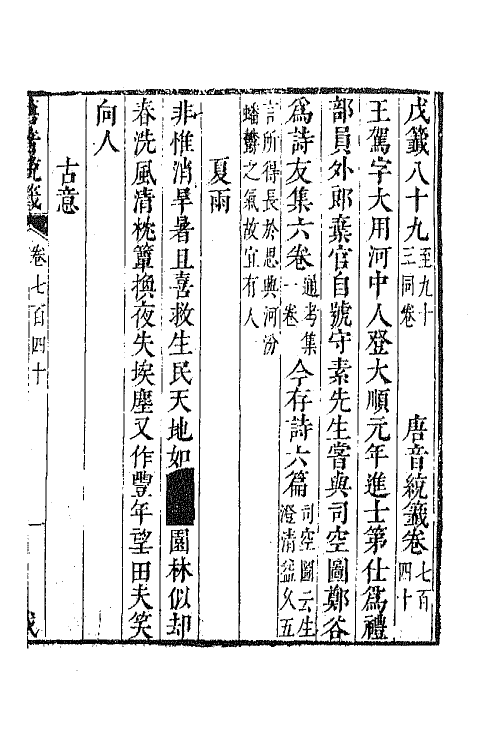 戊籤八十九至九十三同卷 唐音統籤卷七百四十
王駕字大用河中人登大順元年進士第仕為禮
部員外郎棄官自號守素先生嘗與司空圖鄭谷
為詩友集六卷通考集一卷今存詩六篇司空圖云生澄清益久五
言所得長於思與河汾蟠鬱之氣故宜有人
夏雨
非惟消旱暑且喜救生民天地如■園林似却
春洗風清枕簟換夜失埃塵又作豐年望田夫笑
向人
古意
唐音統籤 卷七百四十 一